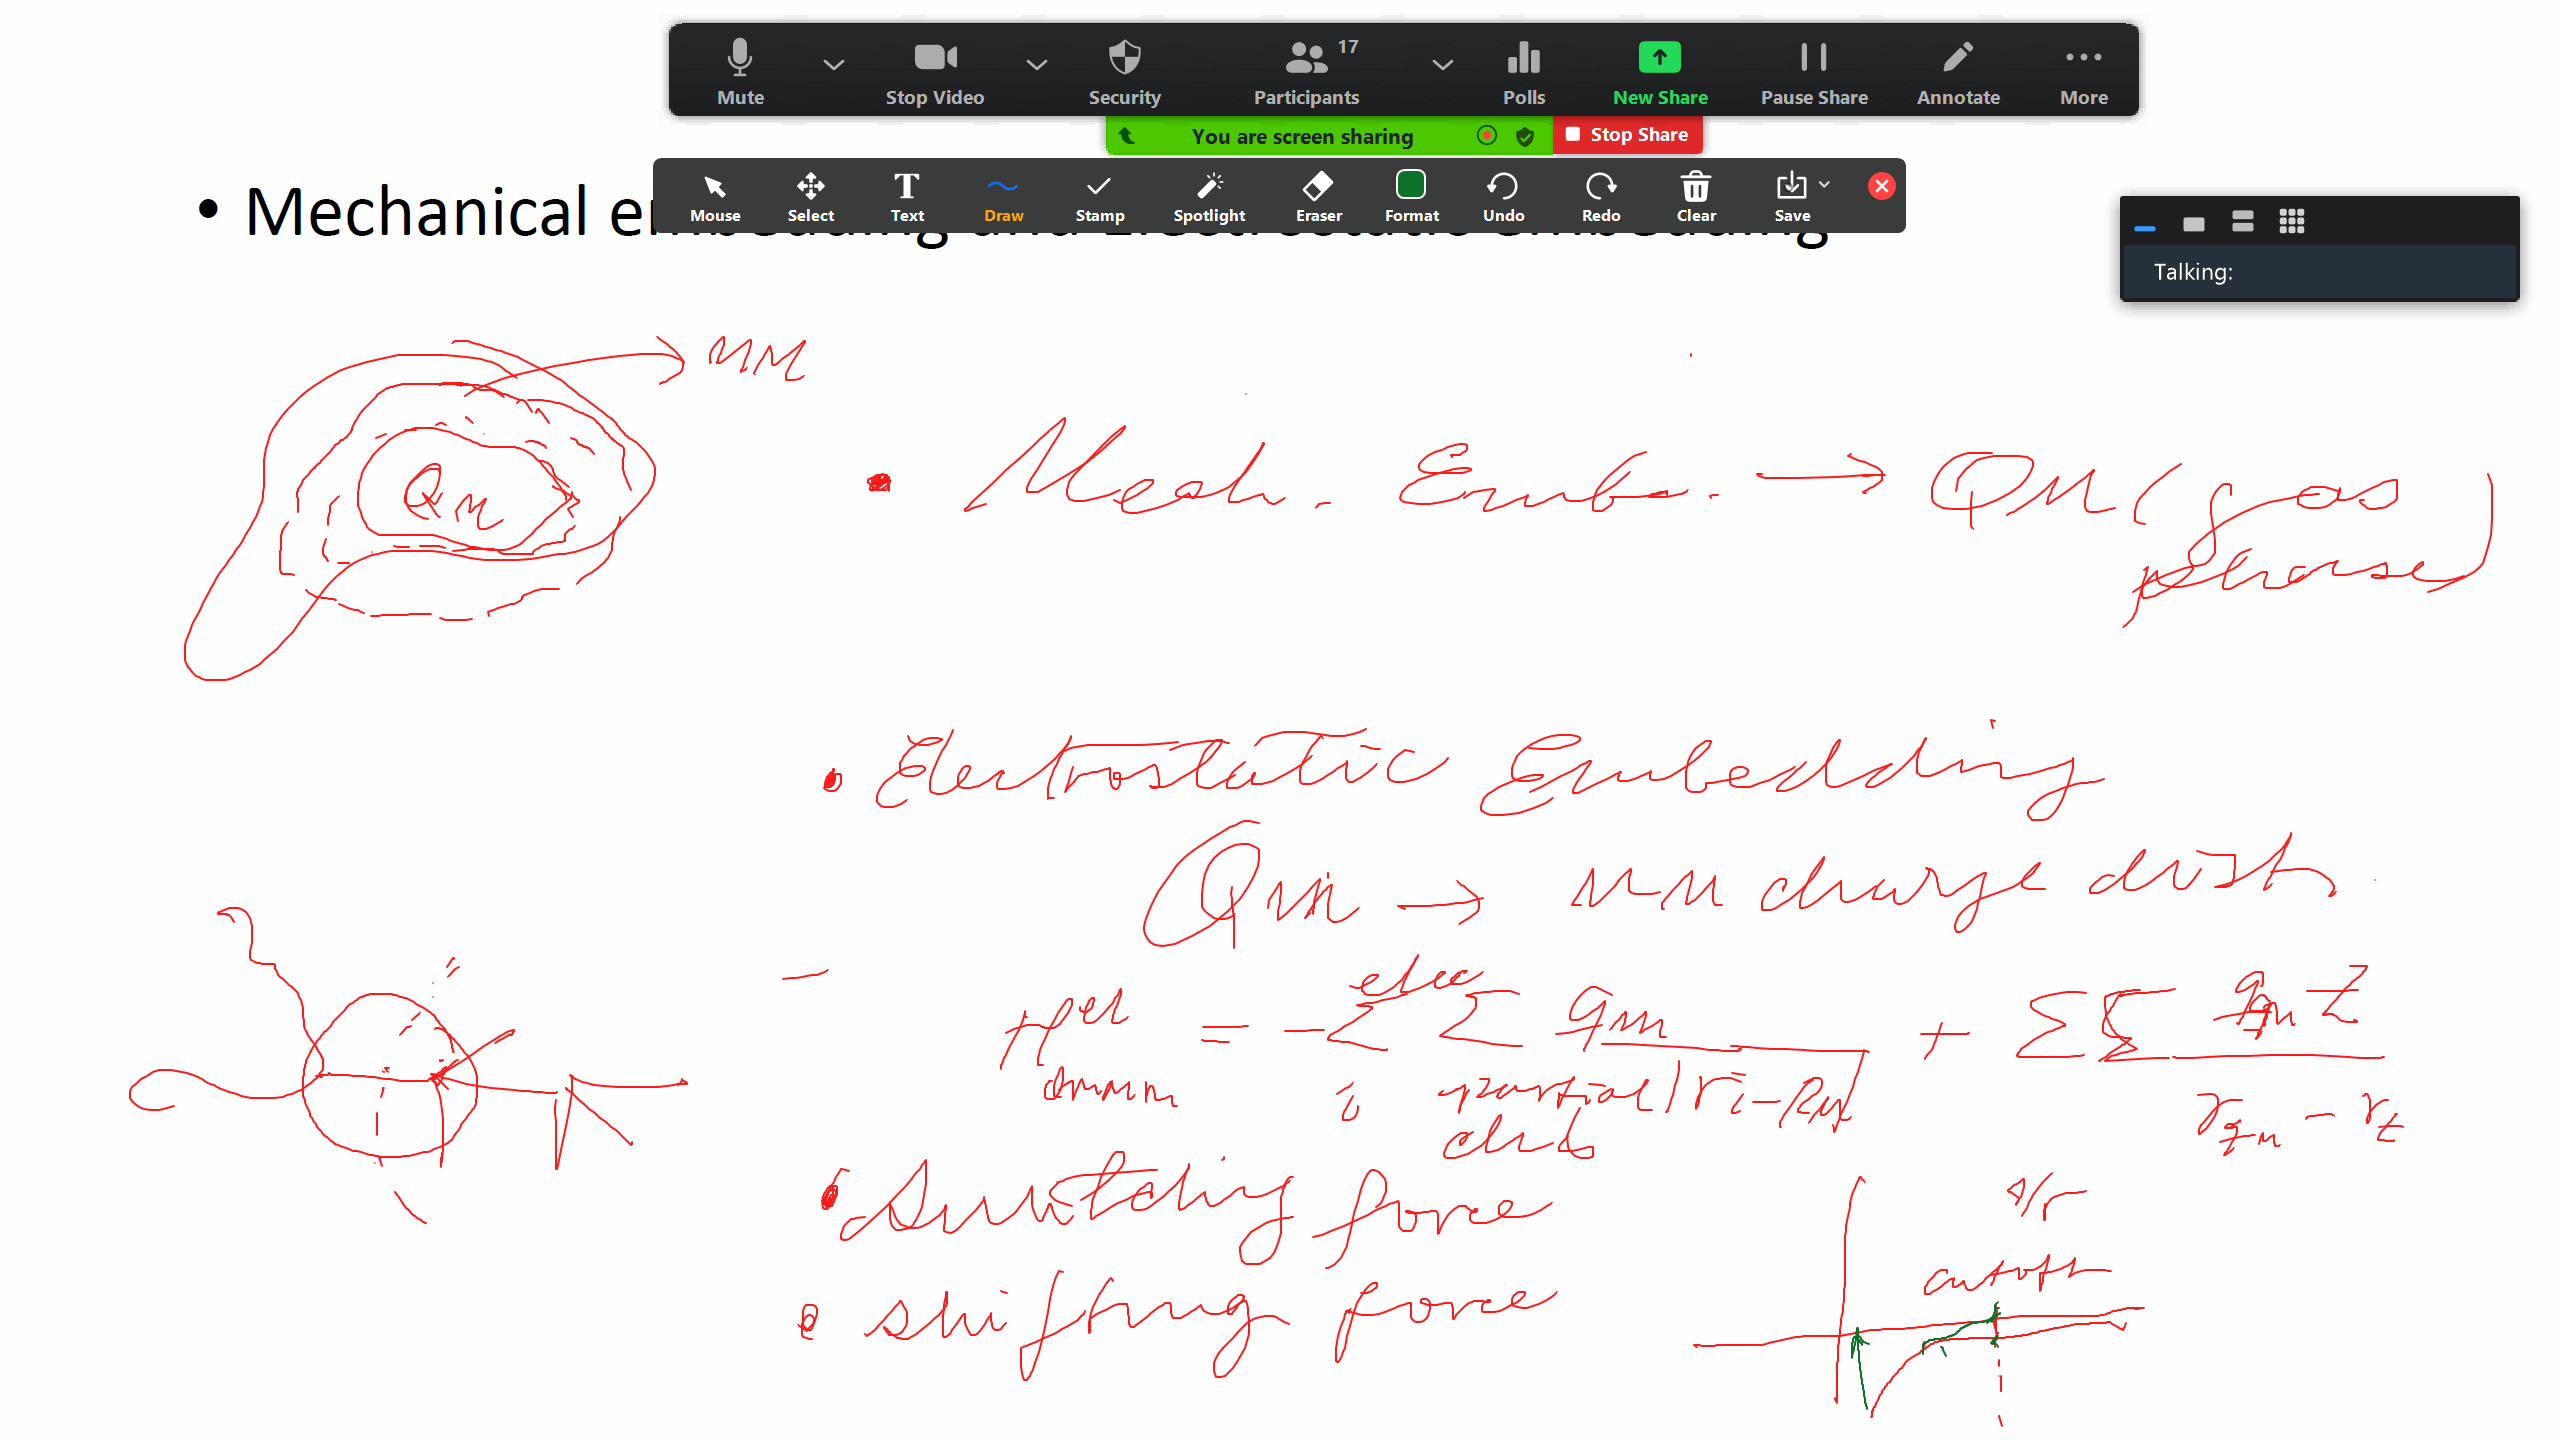 17
Mute
Stop Video
Security
Participants
Polls
New Share
Pause Share
Annotate
More
You are screen sharing
Stop Share
Mouse
Select
Text
Draw
Stamp
Spotlight
Eraser
Format
Undo
Redo
Clear
Save
Talking:
• Mechanical embedding and Electrostatic embedding
MM
QM
• Mech. Emb. → QM (gas
phase)
• Electrostatic Embedding
QM → MM charge dist.
elec
H^el = - Σ Σ qm + Σ Σ qm Z
i partial |ri - Rm| r qm - rz
• Switching force
• shifting force
1/r
cutoff